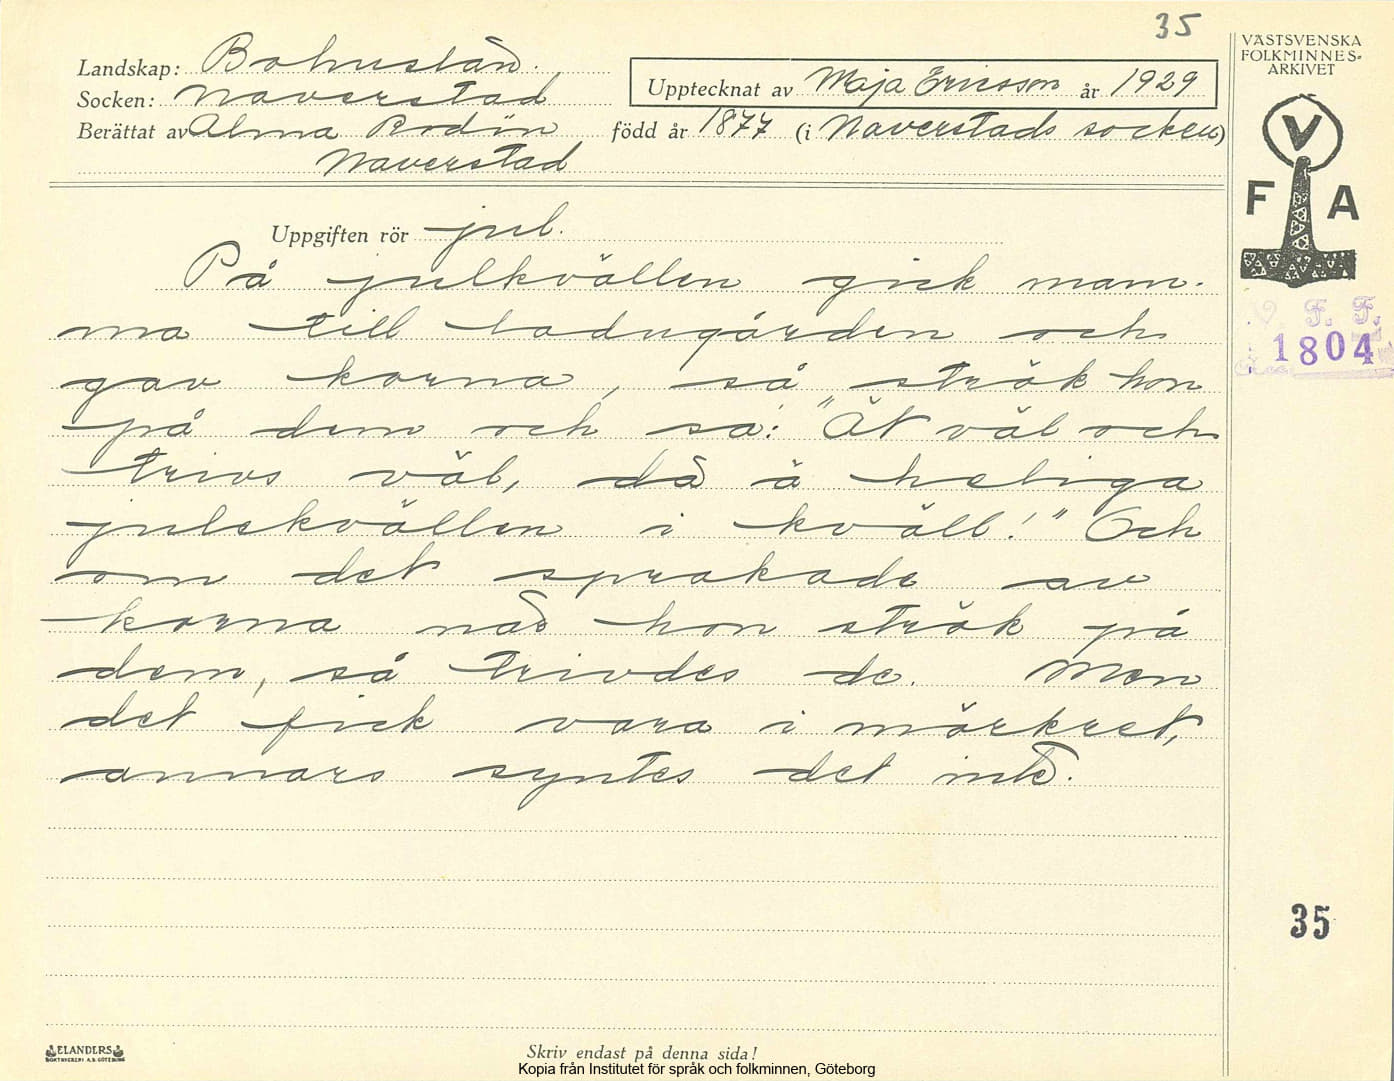 35
VÄSTSVENSKA
FOLKMINNES-
ARKIVET
Landskap: Bohuslän.
Socken: Naverstad
Upptecknat av Maja Ericsson år 1929
Berättat av Alma Bodin född år 1877 (i Naverstads socken)
Naverstad
V
F A
Uppgiften rör jul.
På julkvällen gick mam-
ma till ladugården och
gav korna, så strök hon
på dem och sa: "Ät väl och
trivs väl, då ä heliga
julekvällen i kväll!" Och
om det sprakade av
korna när hon strök på
dem, så trivdes de. Men
det fick vara i mörkret,
annars syntes det inte.
V. F. F.
1804
35
ELANDERS
BOKTRYCKERI A.B. GÖTEBORG
Skriv endast på denna sida!
Kopia från Institutet för språk och folkminnen, Göteborg